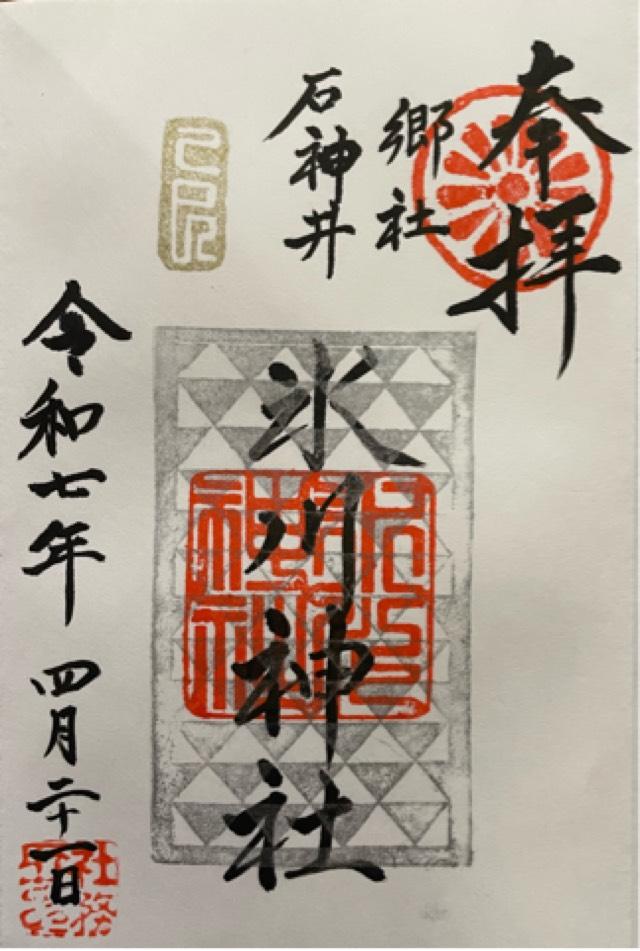 奉拝
郷社
石神井
氷川神社
令和七年 四月二十一日
社務